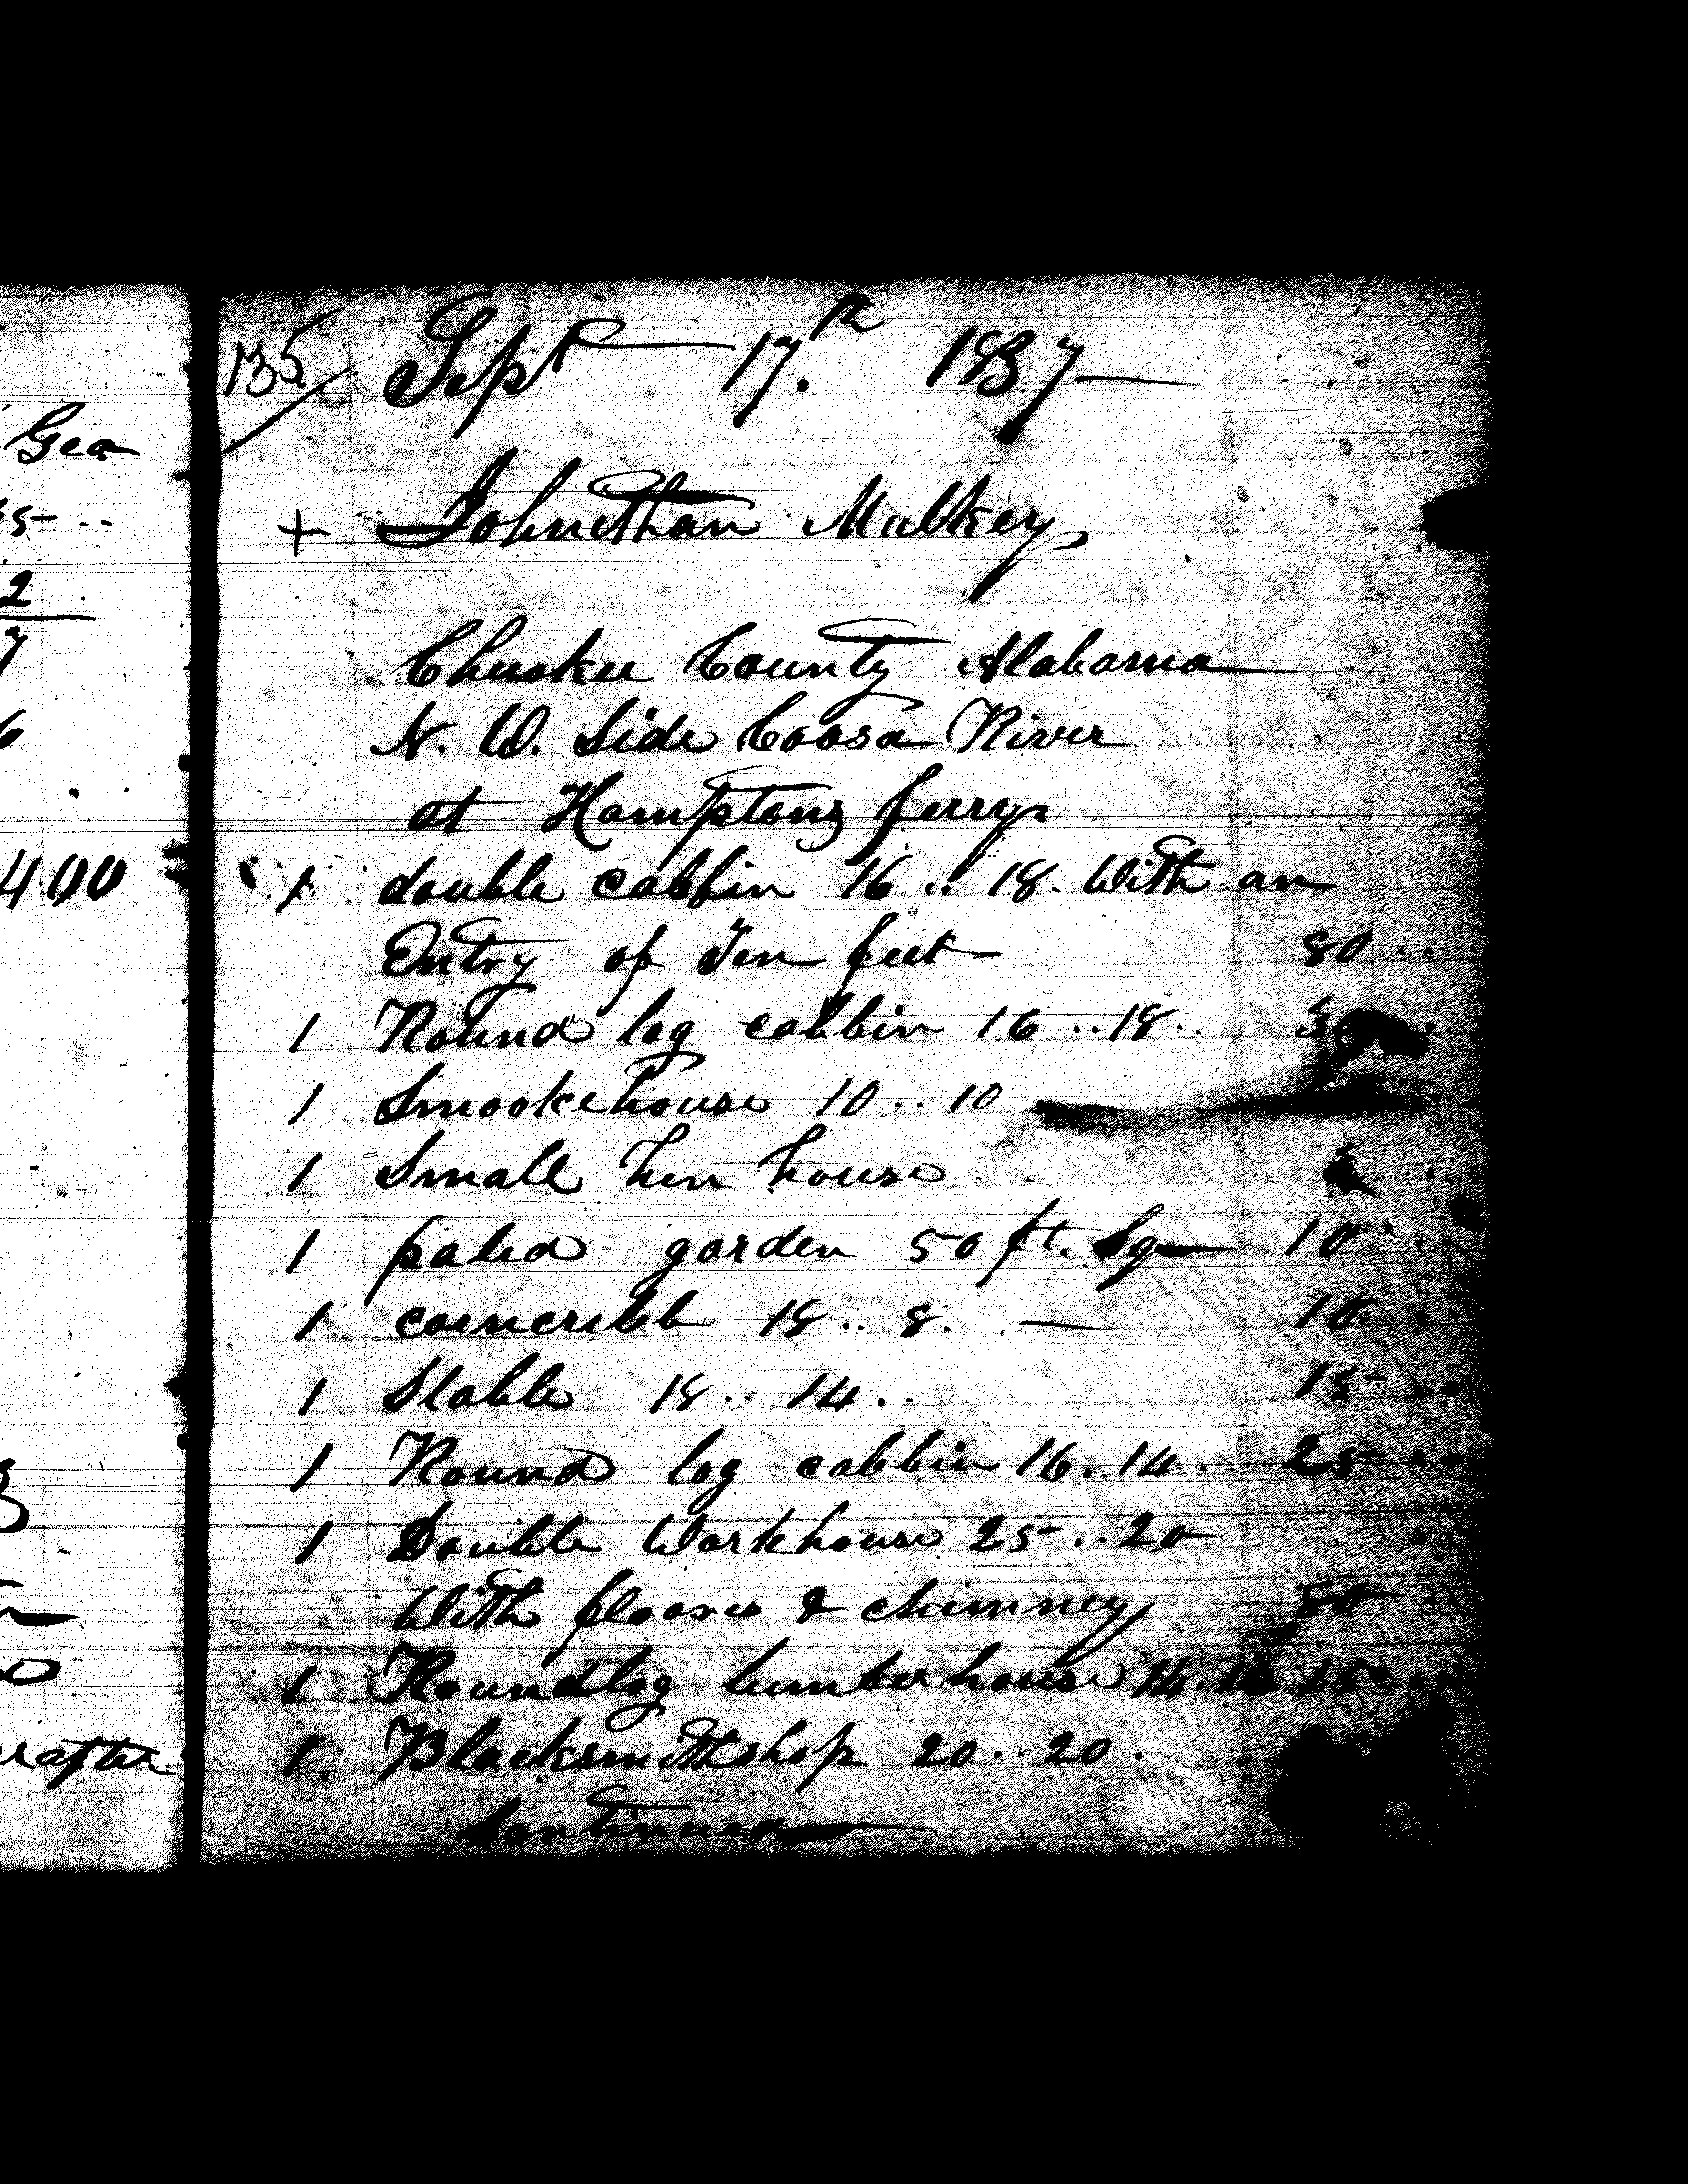 Gea
5 ..
2
7
6
400
rafter
135/ Sept 17.th 1837
+ Johnethan Mulkey
Cherokee County Alabama
N. W. Side Coosa River
at Hamptons ferry
1 double cabbin 16 .. 18. With an
Entry of Ten feet 80 ..
1 Round log cabbin 16 .. 18 ..
1 Smookehouse 10 .. 10
1 Small hen house
1 paled garden 50 ft. Sq 10 ..
1 corncribb 18 .. 8. 10 ..
1 Stable 18 .. 14 .. 15 ..
1 Round log cabbin 16. 14. 25 ..
1 Double Workhouse 25 .. 20
With floores & chimney 80 ..
1 Roundlog lumberhouse 14. 15 ..
1. Blacksmithshop 20 .. 20.
Continued